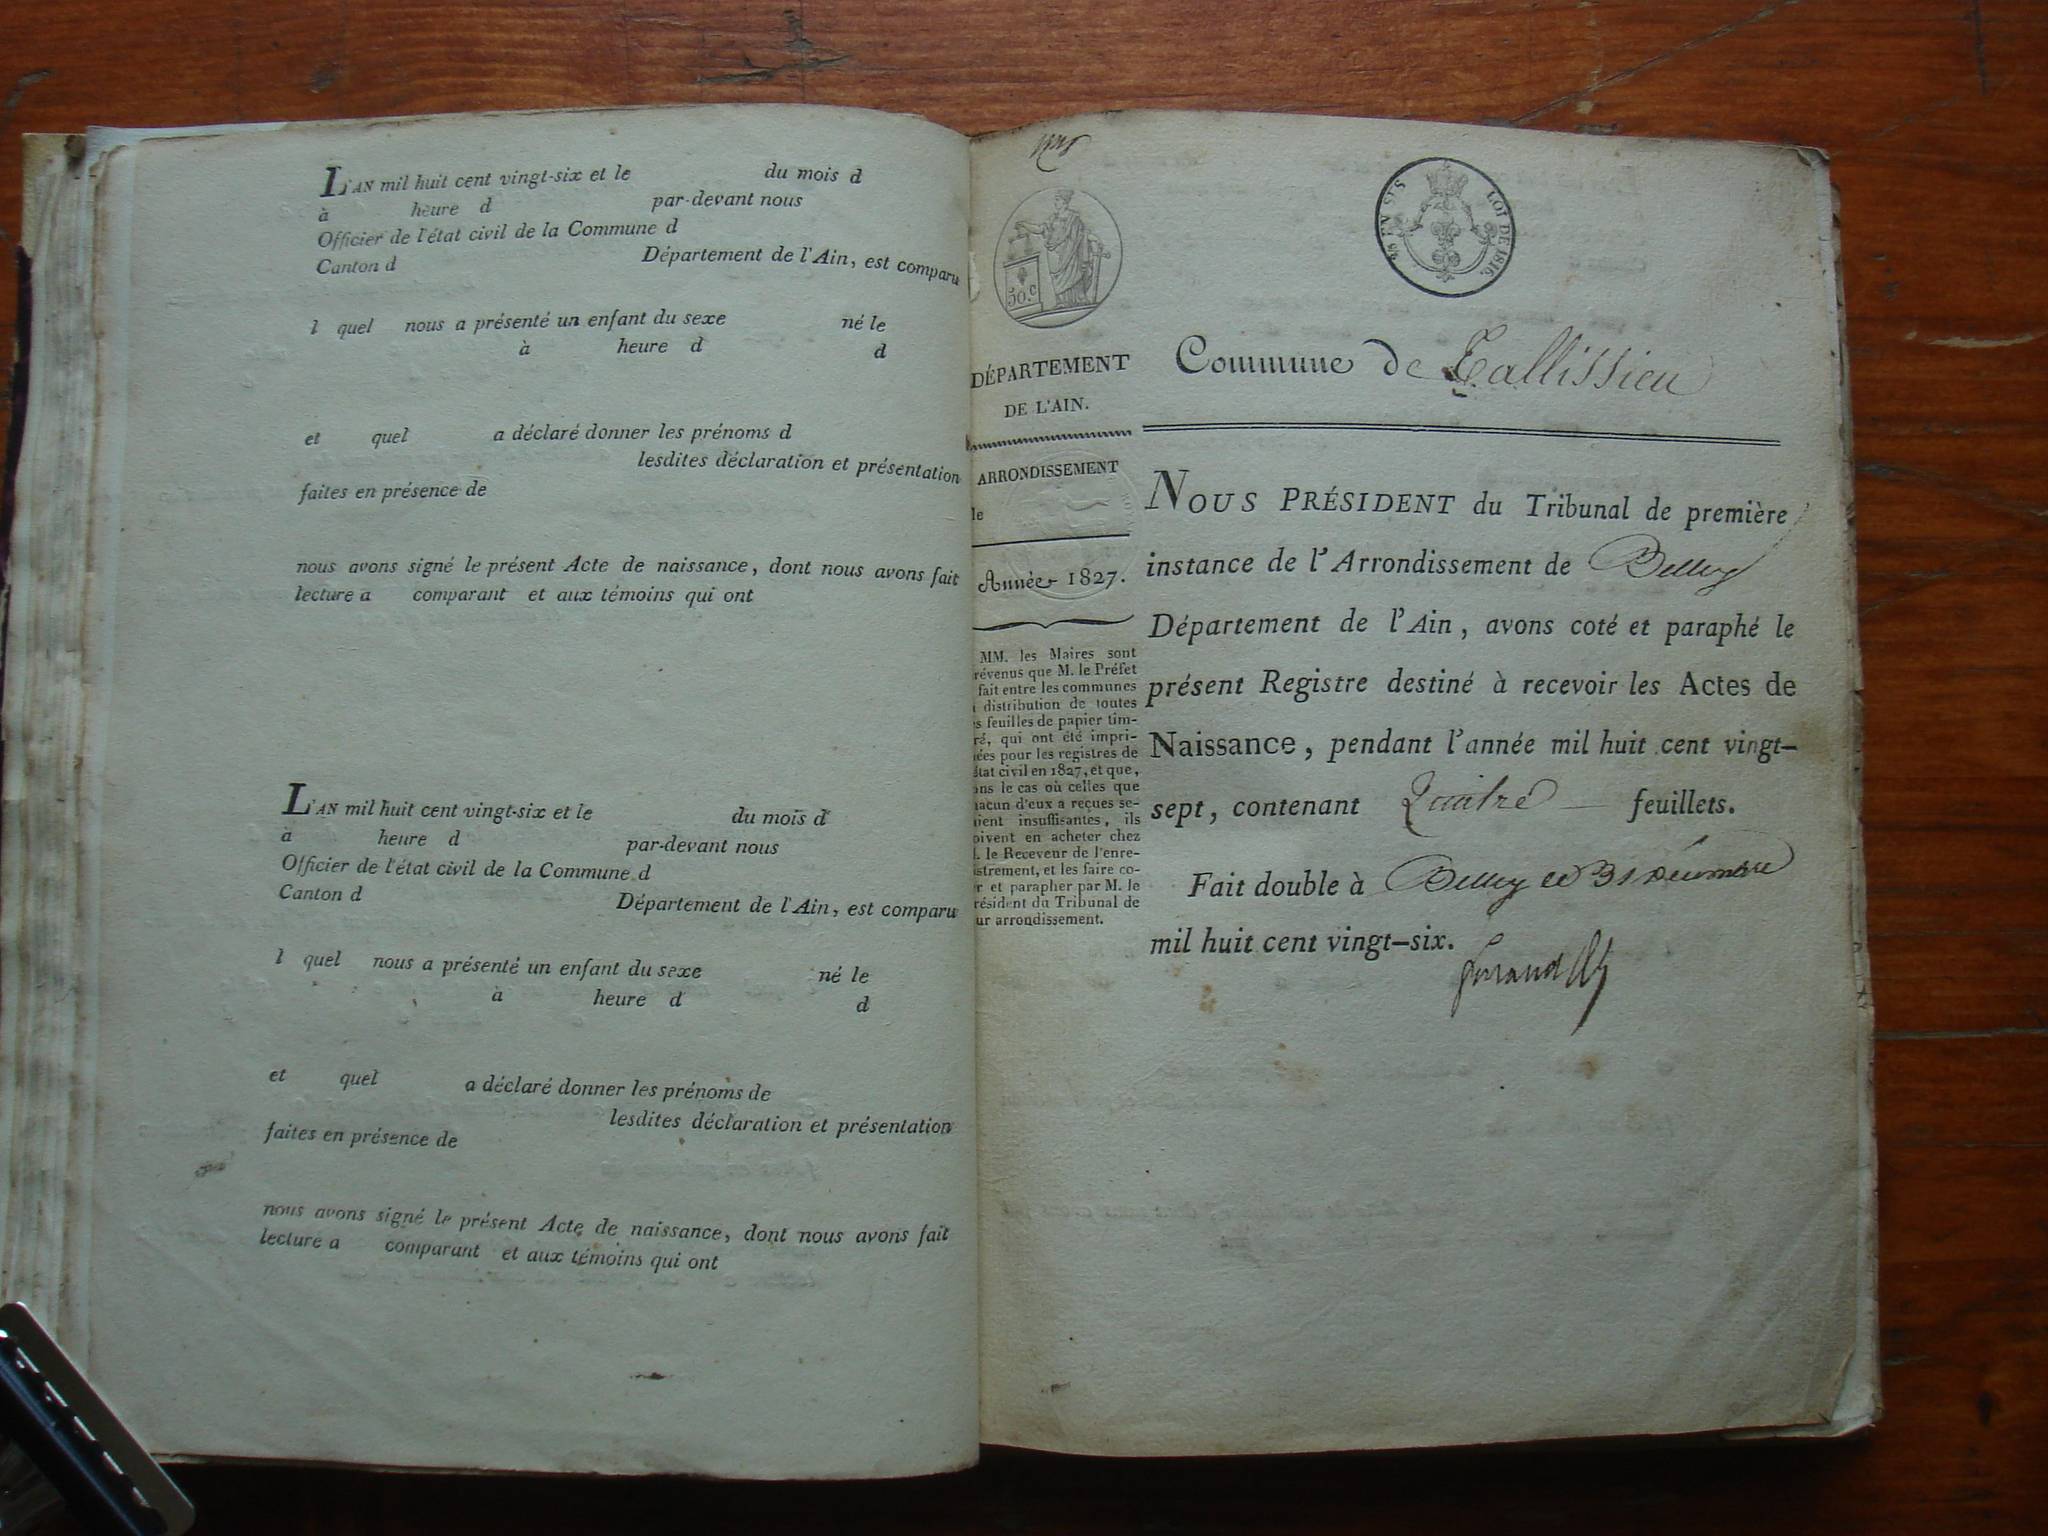 L'AN mil huit cent vingt-six et le du mois d
à heure d par-devant nous
Officier de l'état civil de la Commune d
Canton d Département de l'Ain, est comparu
l quel nous a présenté un enfant du sexe né le
à heure d d
et quel a déclaré donner les prénoms d
lesdites déclaration et présentation
faites en présence de
nous avons signé le présent Acte de naissance, dont nous avons fait
lecture a comparant et aux témoins qui ont
L'AN mil huit cent vingt-six et le du mois d
à heure d par-devant nous
Officier de l'état civil de la Commune d
Canton d Département de l'Ain, est comparu
l quel nous a présenté un enfant du sexe né le
à heure d d
et quel a déclaré donner les prénoms de
lesdites déclaration et présentation
faites en présence de
nous avons signé le présent Acte de naissance, dont nous avons fait
lecture a comparant et aux témoins qui ont
50.c
DÉPARTEMENT
DE L'AIN.
ARRONDISSEMENT
de
Année 1827.
MM. les Maires sont
révenus que M. le Préfet
fait entre les communes
distribution de toutes
s feuilles de papier tim-
ré, qui ont été impri-
ées pour les registres de
état civil en 1827, et que,
ans le cas où celles que
hacun d'eux a reçues se-
aient insuffisantes, ils
oivent en acheter chez
. le Receveur de l'enre-
istrement, et les faire co-
r et parapher par M. le
résident du Tribunal de
ur arrondissement.
EN SUS
LOI DE 1816.
Commune de Tallissieu
NOUS PRÉSIDENT du Tribunal de première
instance de l'Arrondissement de Belley
Département de l'Ain, avons coté et paraphé le
présent Registre destiné à recevoir les Actes de
Naissance, pendant l'année mil huit cent vingt-
sept, contenant Quatre feuillets.
Fait double à Belley le 31 Décembre
mil huit cent vingt-six.